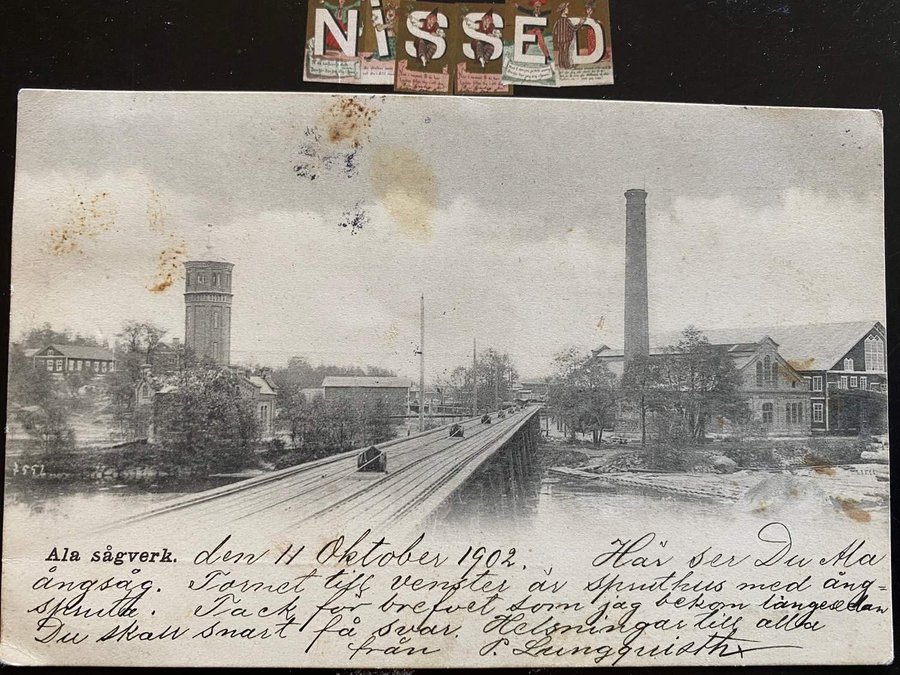 NISSED
7557
Ala sågverk. den 11 Oktober 1902. Här ser Du Ala
ångsåg. Tornet till venster är spruthus med ång-
spruta. Tack för brefvet som jag bekom längesedan
Du skall snart få svar. Helsningar till alla
från P. Lungquisth